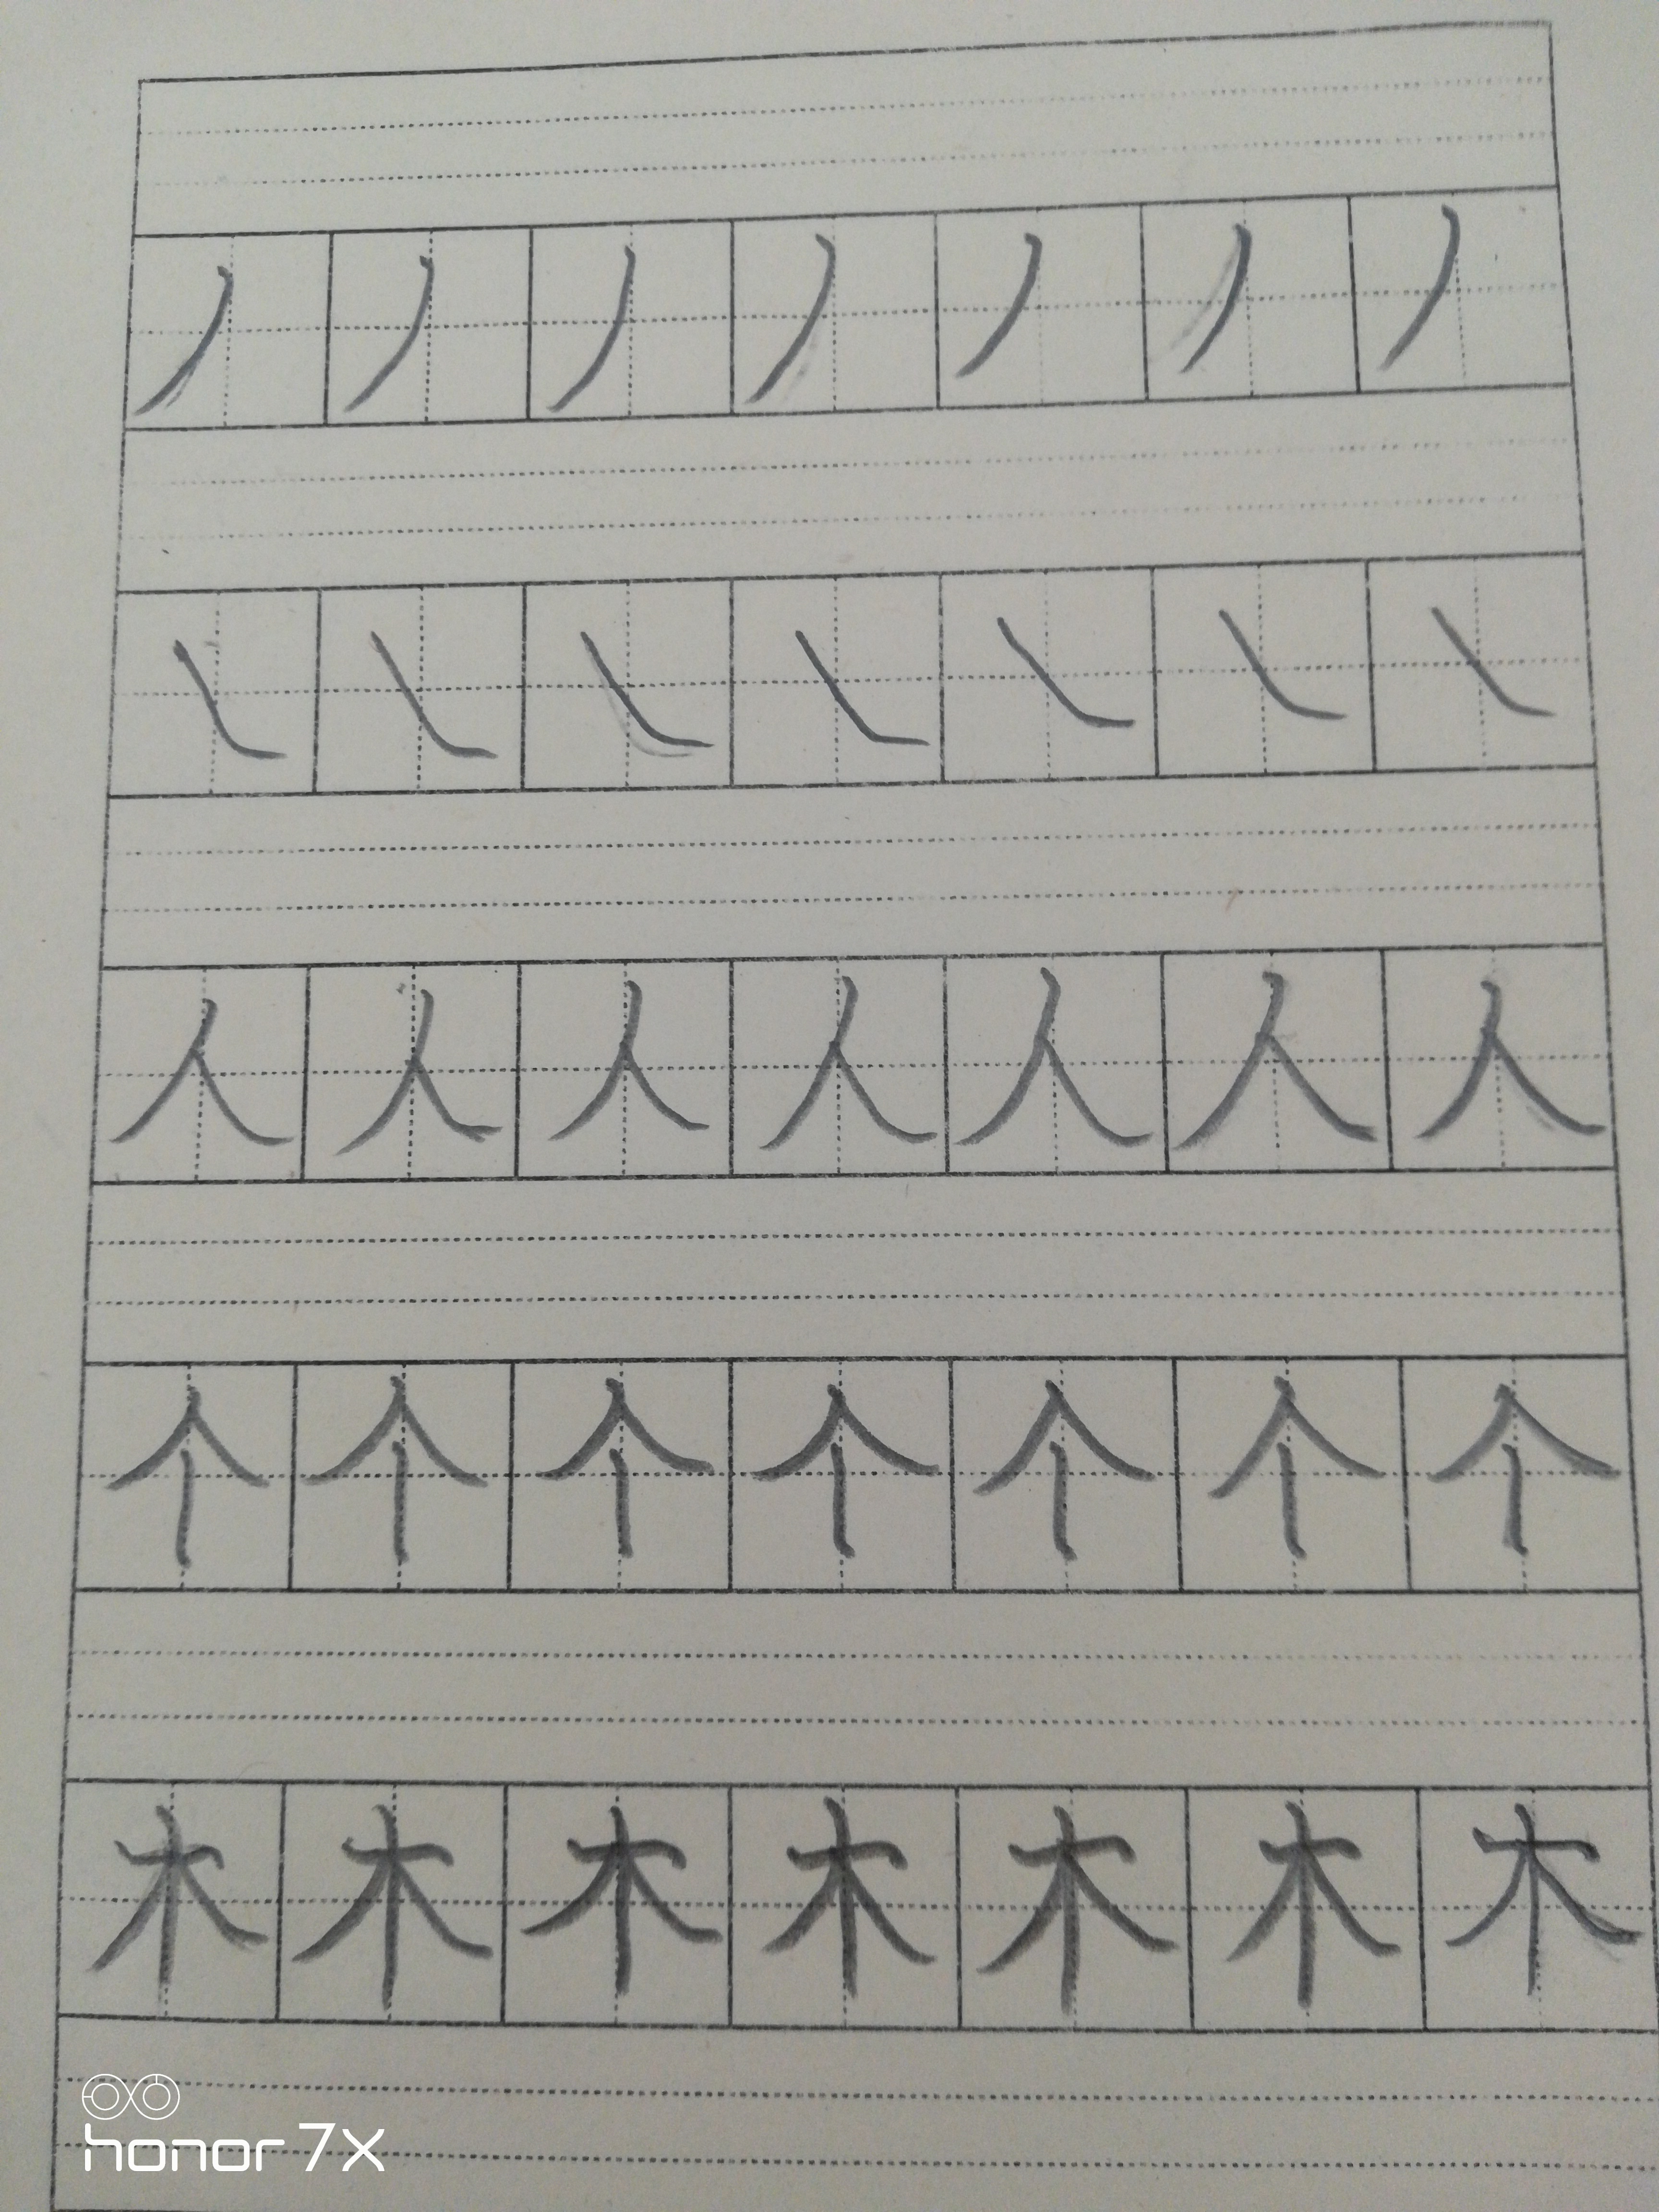 丿 丿 丿 丿 丿 丿 丿
㇏ ㇏ ㇏ ㇏ ㇏ ㇏ ㇏
人 人 人 人 人 人 人
个 个 个 个 个 个 个
木 木 木 木 木 木 木
honor 7X